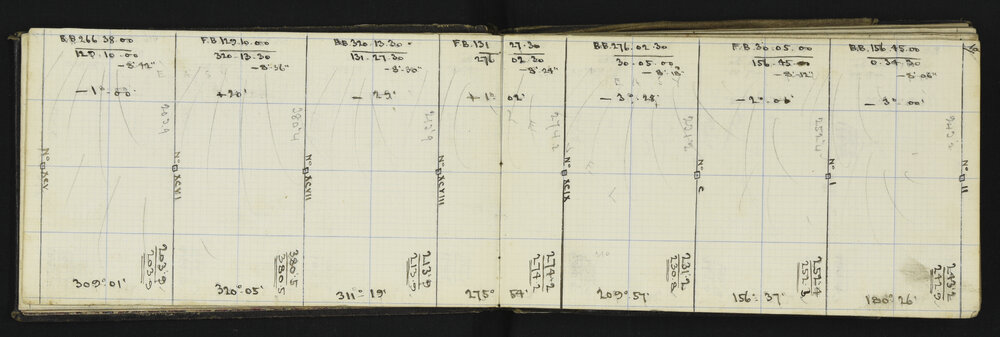 B.B. 266.38.00
129.10.00
-8'.42"
-1°.00'
203.9
203.9
309°01'
No XCV
F.B. 129.10.00
320.13.30
-8'.36"
+20'
380.5
380.5
320°.05'
No XCVI
B.B. 320.13.30
131.27.30
-8'.30"
- 29'
213.9
213.9
311°19'
No XCVII
F.B. 131 27.30
276 02.30
-8'.24"
+1° 02'
274.2
274.2
275° 54'
No XCVIII
B.B. 276.02.30
30.05.00
-8'.18"
-3°.28'
231.2
209°.57'
No XCIX
F.B. 30.05.00
156.45.00
-8'.12"
-2°.06'
252.4
156°.37'
No C
B.B. 156.45.00
0.34.30
-8'.06"
-3°.00'
243.2
180°26'
No I
No II